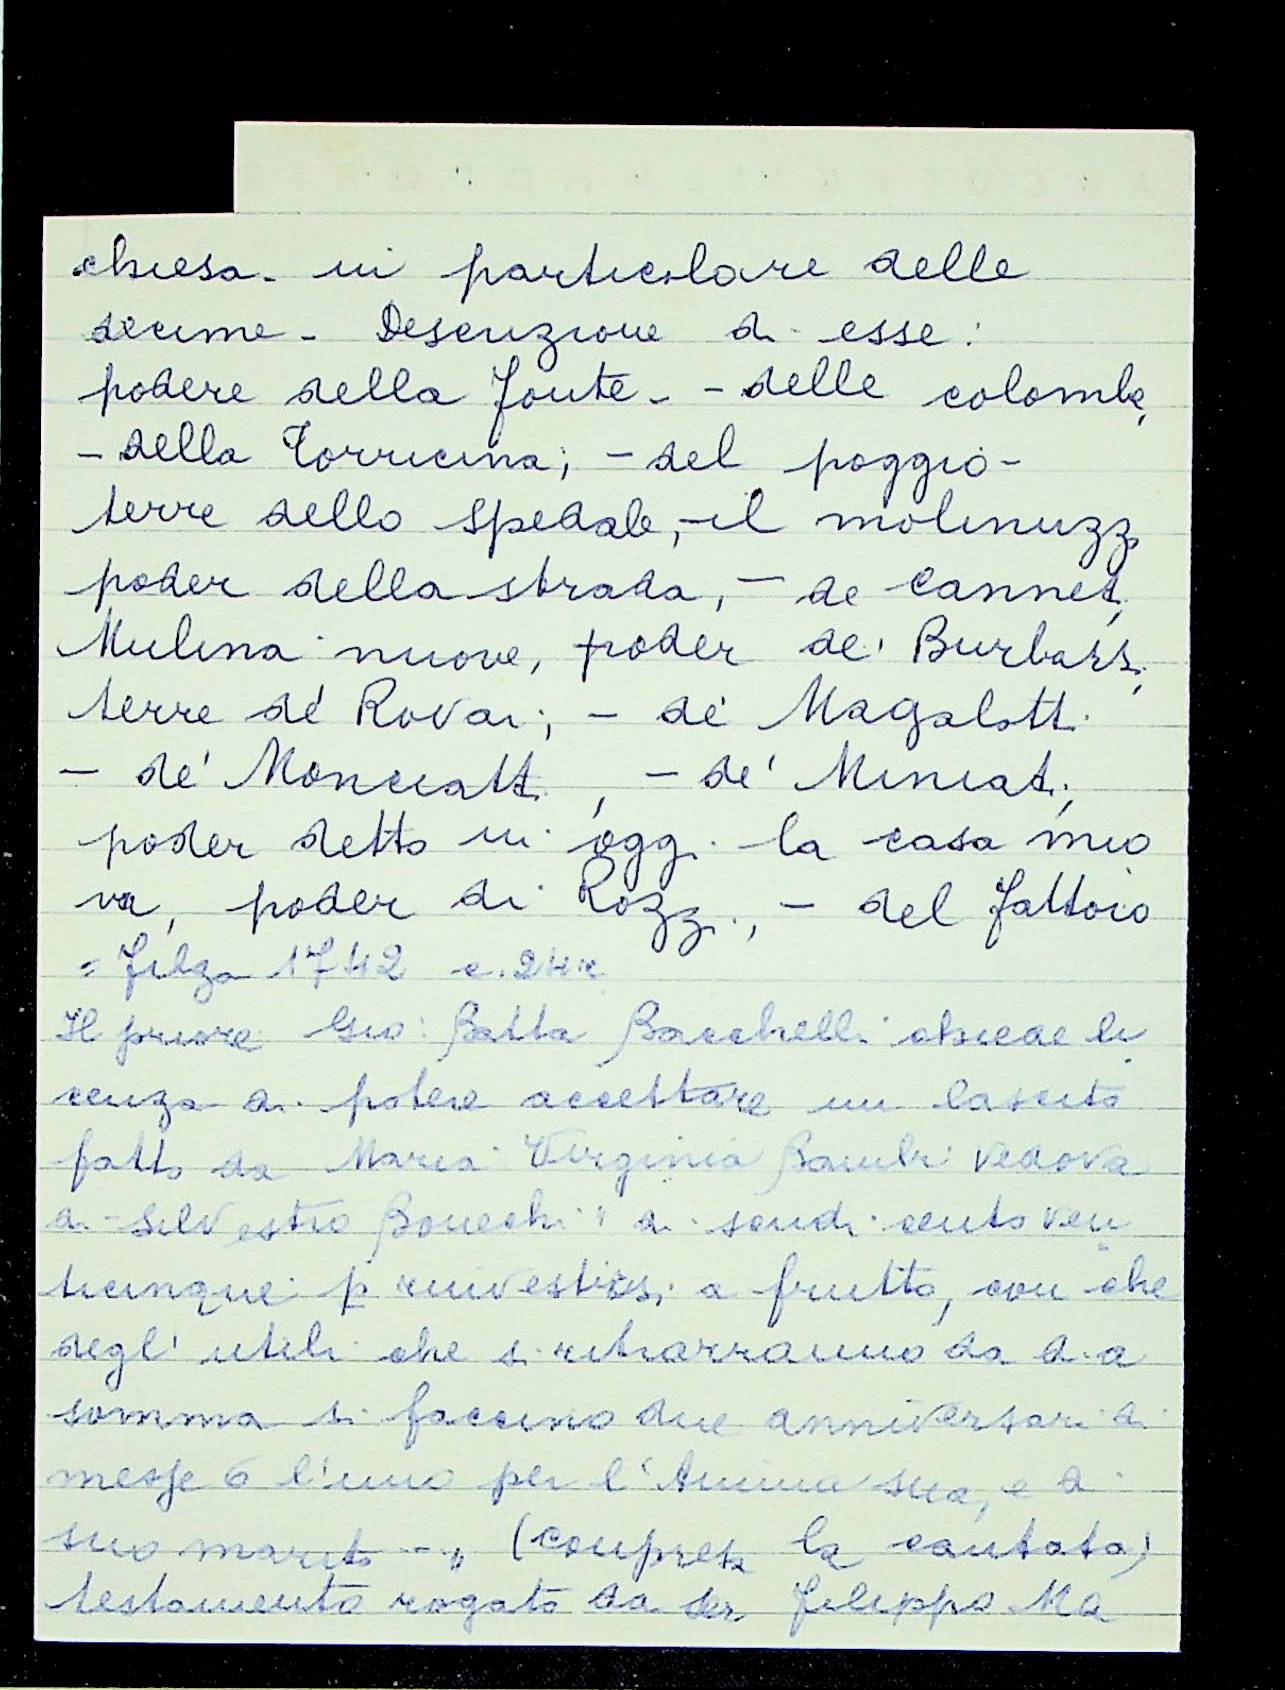 chiesa - in particolare delle
decime - Descrizione di esse:
podere della Fonte - - delle colombe,
- della Torricina; - del poggio -
terre dello Spedale, - il molinuzzo
poder della strada, - de Canneti,
Mulina nuove, poder de' Burbassi,
terre de' Rovai; - de' Magalotti
- de' Monciatti, - de' Miniati,
poder detto in oggi la casa nuo
va, poder di Rozzi, - del fattoio
= Filza 1742 c. 24
Il priore Gio: Batta Bacchelli chiede li
cenza di potere accettare un lascito
fatto da Maria Virginia Bambi vedova
di Silvestro Bonechi "di scudi cento ven
ticinque p rinvestirsi a frutto, con che
degl' utili che si ritrarranno da d.a
somma si faccino due anniversari di
messe 6 l'uno per l'Anima sua, e di
suo marito - " (compresa la cantata)
testamento rogato da ser Filippo Ma